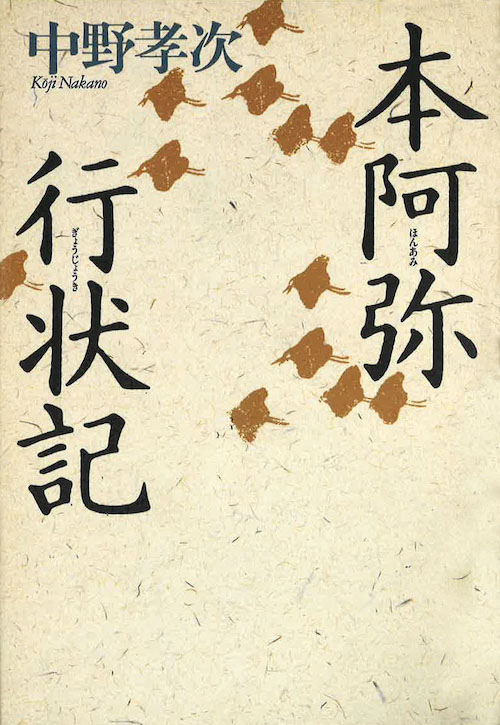 中野孝次
Kōji Nakano
本阿弥
ほんあみ
行状記
ぎょうじょうき